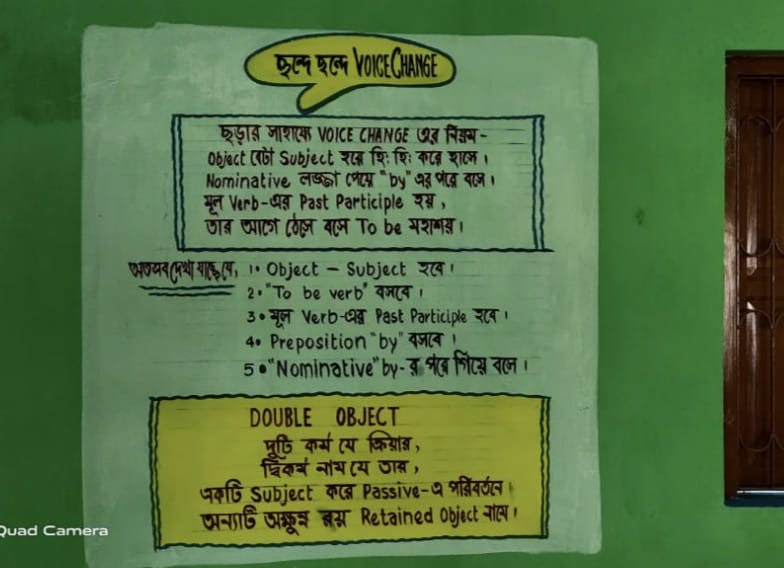 ছন্দে ছন্দে VOICE CHANGE
ছড়ার সাহায্যে VOICE CHANGE এর নিয়ম-
Object বেটা Subject হয়ে হিঃ হিঃ করে হাসে।
Nominative লজ্জা পেয়ে "by" এর পরে বসে।
মূল Verb-এর Past Participle হয়,
তার আগে ঠেসে বসে To be মহাশয়।
অতএব দেখা যাচ্ছে যে, 1• Object – Subject হবে।
2• "To be verb" বসবে।
3• মূল Verb-এর Past Participle হবে।
4• Preposition "by" বসবে।
5• "Nominative" by-র পরে গিয়ে বসে।
DOUBLE OBJECT
দুটি কর্ম যে ক্রিয়ার,
দ্বিকর্ম নাম যে তার,
একটি Subject করে Passive-এ পরিবর্তনে।
অন্যটি অক্ষুন্ন রয় Retained Object নামে।
Quad Camera